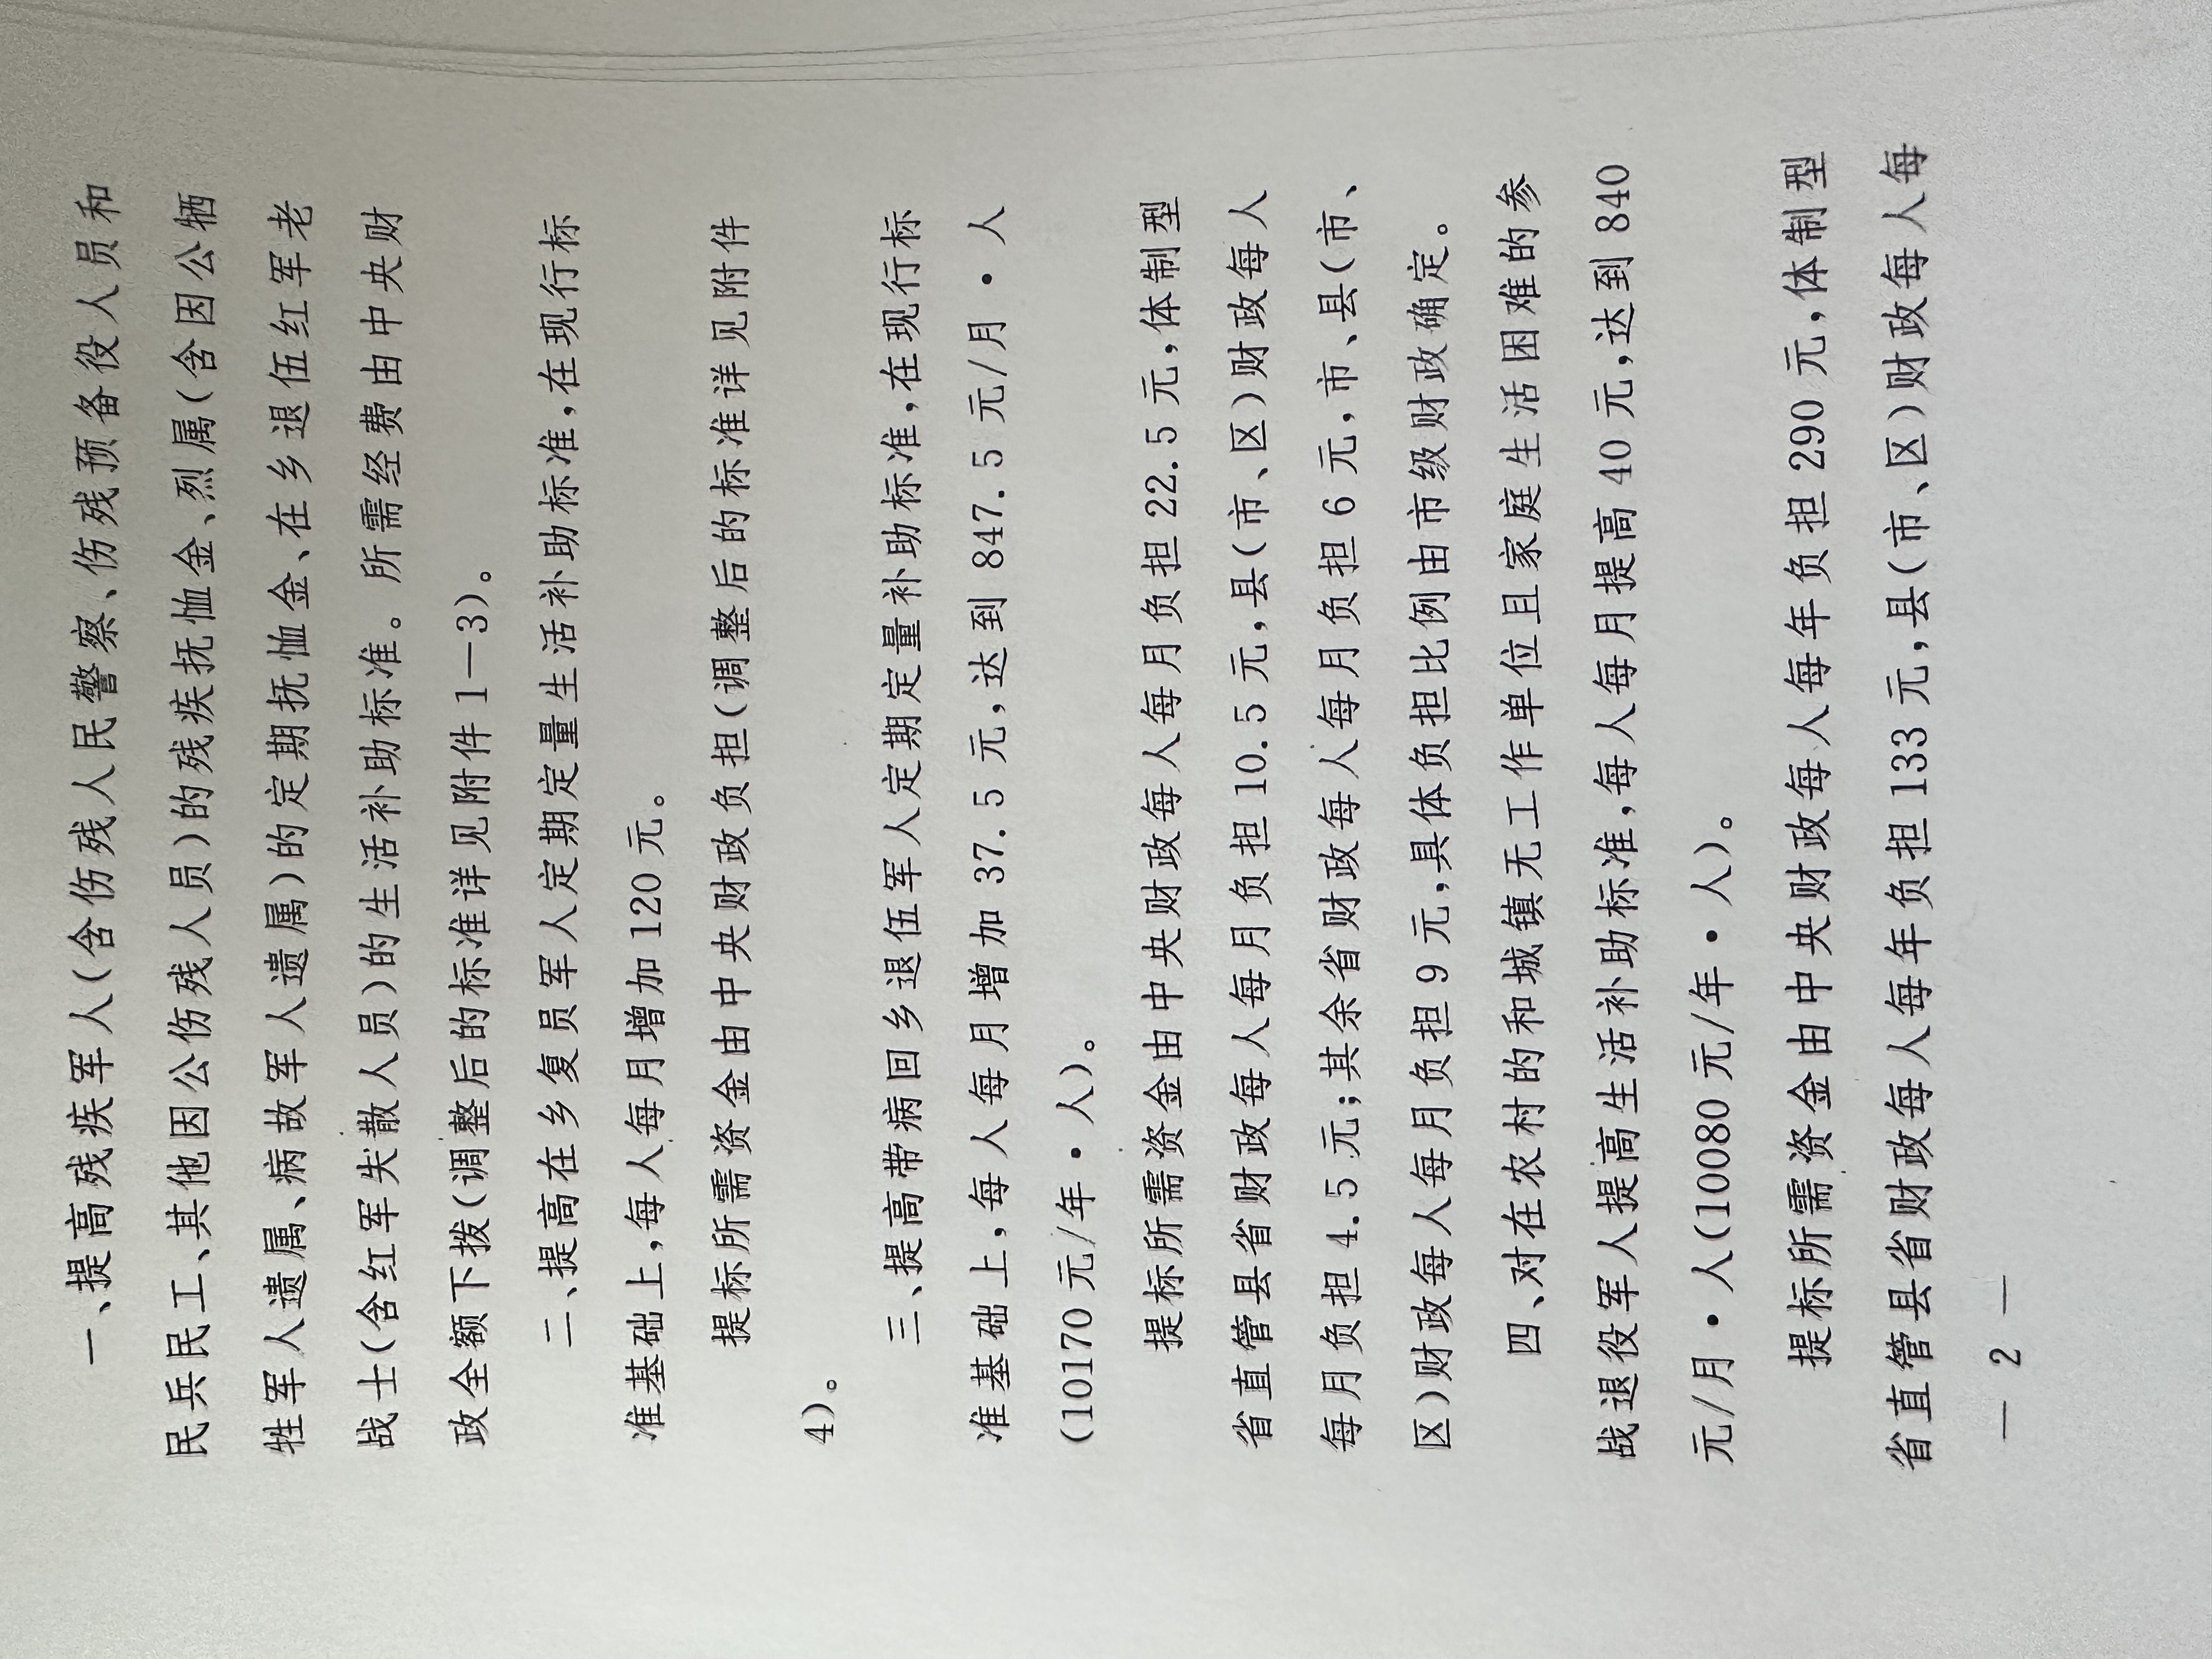 一、提高残疾军人(含伤残人民警察、伤残预备役人员和
民兵民工、其他因公伤残人员)的残疾抚恤金、烈属(含因公牺
牲军人遗属、病故军人遗属)的定期抚恤金、在乡退伍红军老
战士(含红军失散人员)的生活补助标准。所需经费由中央财
政全额下拨(调整后的标准详见附件1—3)。
二、提高在乡复员军人定期定量生活补助标准,在现行标
准基础上,每人每月增加120元。
提标所需资金由中央财政负担(调整后的标准详见附件
4)。
三、提高带病回乡退伍军人定期定量补助标准,在现行标
准基础上,每人每月增加37.5元,达到847.5元/月·人
(10170元/年·人)。
提标所需资金由中央财政每人每月负担22.5元,体制型
省直管县省财政每人每月负担10.5元,县(市、区)财政每人
每月负担4.5元;其余省财政每人每月负担6元,市、县(市、
区)财政每人每月负担9元,具体负担比例由市级财政确定。
四、对在农村的和城镇无工作单位且家庭生活困难的参
战退役军人提高生活补助标准,每人每月提高40元,达到840
元/月·人(10080元/年·人)。
提标所需资金由中央财政每人每年负担290元,体制型
省直管县省财政每人每年负担133元,县(市、区)财政每人每
— 2 —